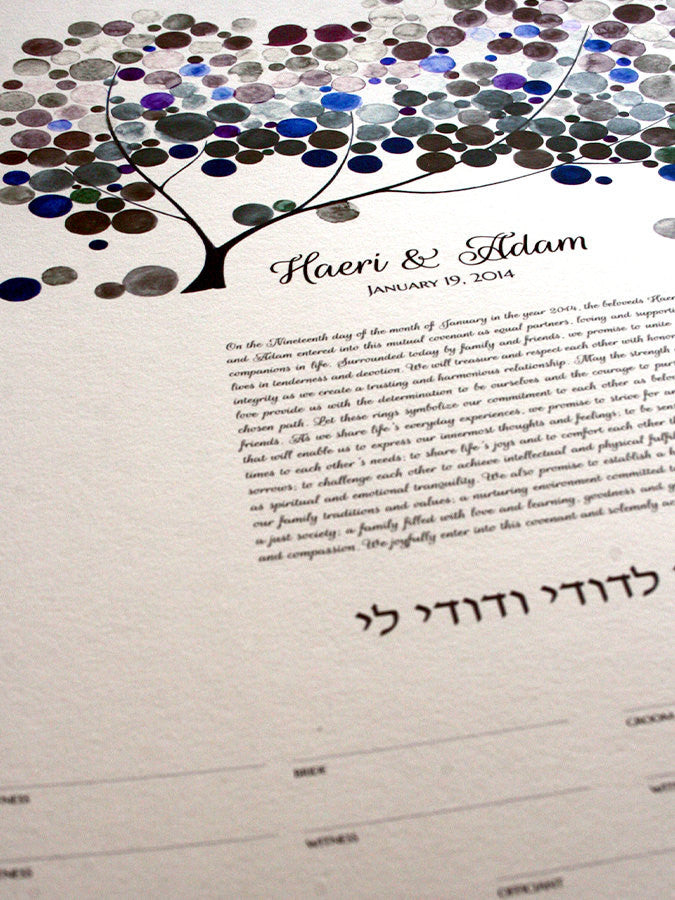 Haeri & Adam
January 19, 2014
On the Nineteenth day of the month of January in the year 2014, the beloveds Haeri
and Adam entered into this mutual covenant as equal partners, loving and
companions in life. Surrounded today by family and friends, we promise to unite
lives in tenderness and devotion. We will treasure and respect each other with
integrity as we create a trusting and harmonious relationship. May the strength
love provide us with the determination to be ourselves and the courage to
chosen path. Let these rings symbolize our commitment to each other as
friends. As we share life's everyday experiences, we promise to strive for
that will enable us to express our innermost thoughts and feelings; to be
times to each other's needs; to share life's joys and to comfort each other
sorrows; to challenge each other to achieve intellectual and physical
as spiritual and emotional tranquility. We also promise to establish a
our family traditions and values; a nurturing environment committed
a just society; a family filled with love and learning, goodness and
and compassion. We joyfully enter into this covenant and solemnly
לדודי ודודי לי
GROOM
BRIDE
WITNESS
OFFICIANT